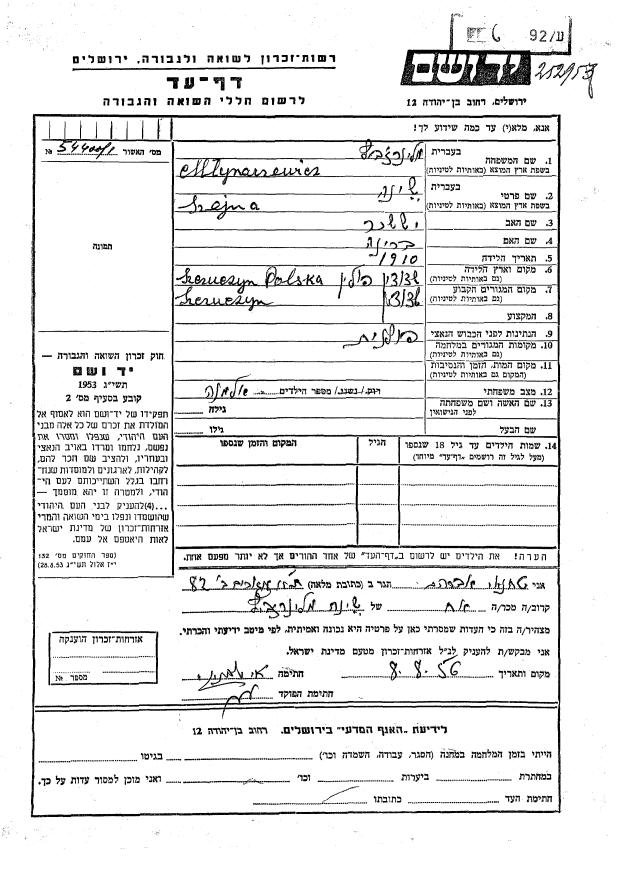 ע/92 6
רשות-זכרון לשואה ולגבורה, ירושלים
דף-עד
לרשום חללי השואה והגבורה
יד ושם
ירושלים, רחוב בן-יהודה 12
מס׳ האשור №
תמונה
אנא, מלא(י) עד כמה שידוע לך!
1. שם המשפחה בעברית
בשפת ארץ המוצא (באותיות לטיניות)
2. שם פרטי בעברית שינה
בשפת ארץ המוצא (באותיות לטיניות)
3. שם האב יששכר
4. שם האם
5. תאריך הלידה 1910
6. מקום וארץ הלידה פולין Polska
(גם באותיות לטיניות)
7. מקום המגורים הקבוע
(גם באותיות לטיניות)
8. המקצוע
9. הנתינות לפני הכבוש הנאצי פולנית
10. מקומות המגורים במלחמה
(גם באותיות לטיניות)
11. מקום המות, הזמן והנסיבות
(המקום גם באותיות לטיניות)
12. מצב משפחתי רווק/נשוי/מספר הילדים
13. שם האשה ושם משפחתה גילה
לפני הנישואין
שם הבעל גילו
14. שמות הילדים עד גיל 18 שנספו הגיל המקום והזמן שנספו
(מעל לגיל זה רושמים "דף-עד" מיוחד)
חוק זכרון השואה והגבורה —
יד ושם
תשי״ג 1953
קובע בסעיף מס׳ 2
תפקידו של יד־ושם הוא לאסוף אל
המולדת את זכרם של כל אלה מבני
העם היהודי, שנפלו ומסרו את
נפשם, נלחמו ומרדו באויב הנאצי
ובעוזריו, ולהציב שם וזכר להם,
לקהילות, לארגונים ולמוסדות שנח־
רבו בגלל השתייכותם לעם היי־
הודי, ולמטרה זו יהא מוסמך —
...(4) להעניק לבני העם היהודי
שהושמדו ונפלו בימי השואה והמרי
אזרחות־זכרון של מדינת ישראל
לאות היאספם אל עמם.
(ספר החוקים מס׳ 132
י״ז אלול תשי״ג 28.8.53)
הערה! את הילדים יש לרשום ב"דף-העד" של אחד ההורים אך לא יותר מפעם אחת.
אני הגר ב (כתובת מלאה)
קרוב/ה מכר/ה של שינה
מצהיר/ה בזה כי העדות שמסרתי כאן על פרטיה היא נכונה ואמיתית, לפי מיטב ידיעתי והכרתי.
אני מבקש/ת להעניק לנ״ל אזרחות־זכרון מטעם מדינת ישראל.
מקום ותאריך 8.8.56 חתימה
חתימת הפוקד
אזרחות־זכרון הוענקה
מספר №
לידיעת "האגף המדעי" בירושלים, רחוב בן־יהודה 12
הייתי בזמן המלחמה במחנה (הסגר, עבודה, השמדה וכו׳) בגיטו
במחתרת ביערות וכו׳ ואני מוכן למסור עדות על כך.
חתימת העד כתובתו